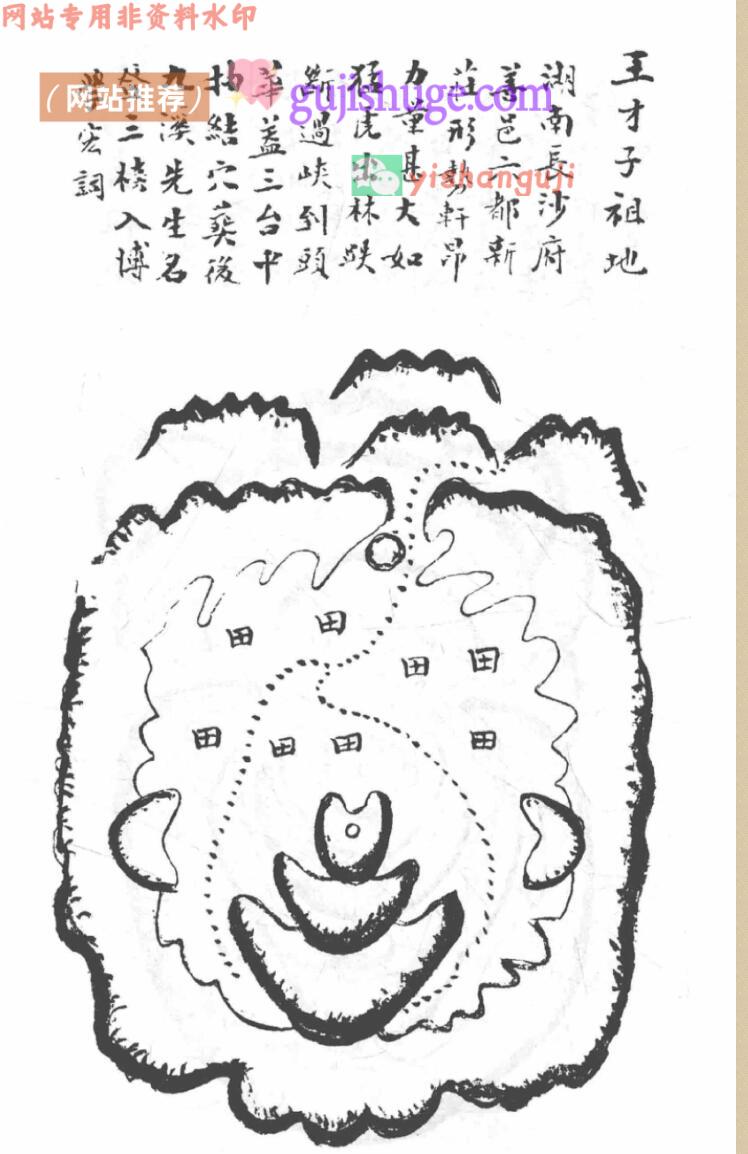 网站专用非资料水印
（网站推荐）
gujishuge.com
yishanguji
王才子祖地
湖南長沙府
善邑六都新
莊形勢軒昂
力量甚大如
猛虎出林跌
斷過峽到頭
華蓋三台中
抽結穴葬後
九溪先生名
登三榜入博
學宏詞
田
田
田
田
田
田
田
田